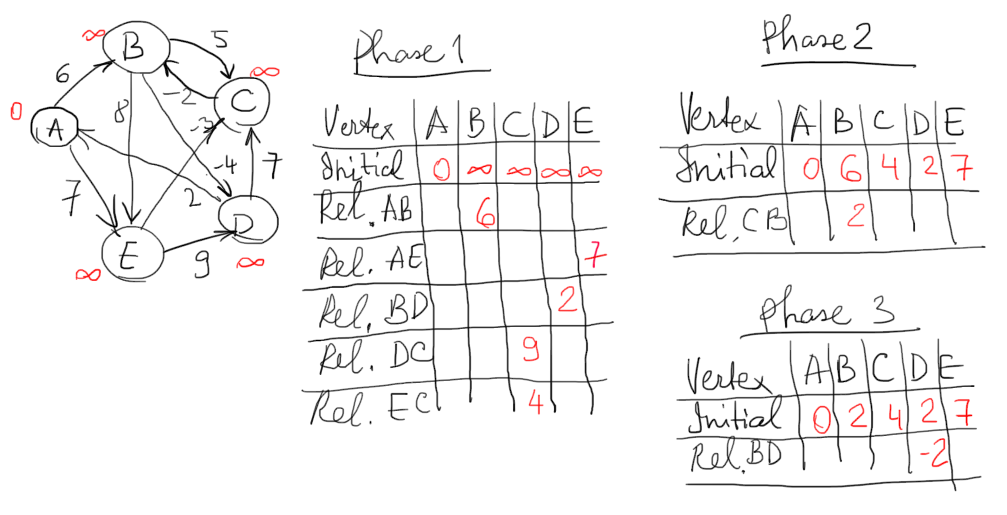 ∞ B 5
6 ∞
0 A 8 -2 C
-3
7 -4 7
2
E D
∞ 9 ∞
Phase 1
Vertex A B C D E
Initial 0 ∞ ∞ ∞ ∞
Rel. AB 6
Rel. AE 7
Rel. BD 2
Rel. DC 9
Rel. EC 4
Phase 2
Vertex A B C D E
Initial 0 6 4 2 7
Rel. CB 2
Phase 3
Vertex A B C D E
Initial 0 2 4 2 7
Rel. BD -2